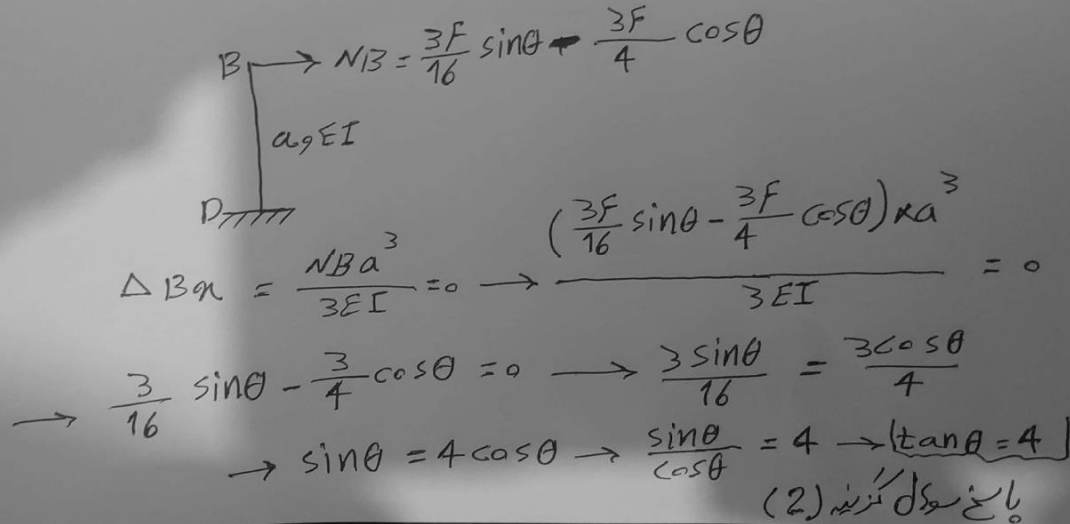 B → NB = 3F/16 sinθ - 3F/4 cosθ
a, EI
D
ΔBx = NBa³/3EI = 0 → (3F/16 sinθ - 3F/4 cosθ)×a³/3EI = 0
→ 3/16 sinθ - 3/4 cosθ = 0 → 3sinθ/16 = 3cosθ/4
→ sinθ = 4cosθ → sinθ/cosθ = 4 → tanθ = 4
پاسخ سوال گزینه (2)